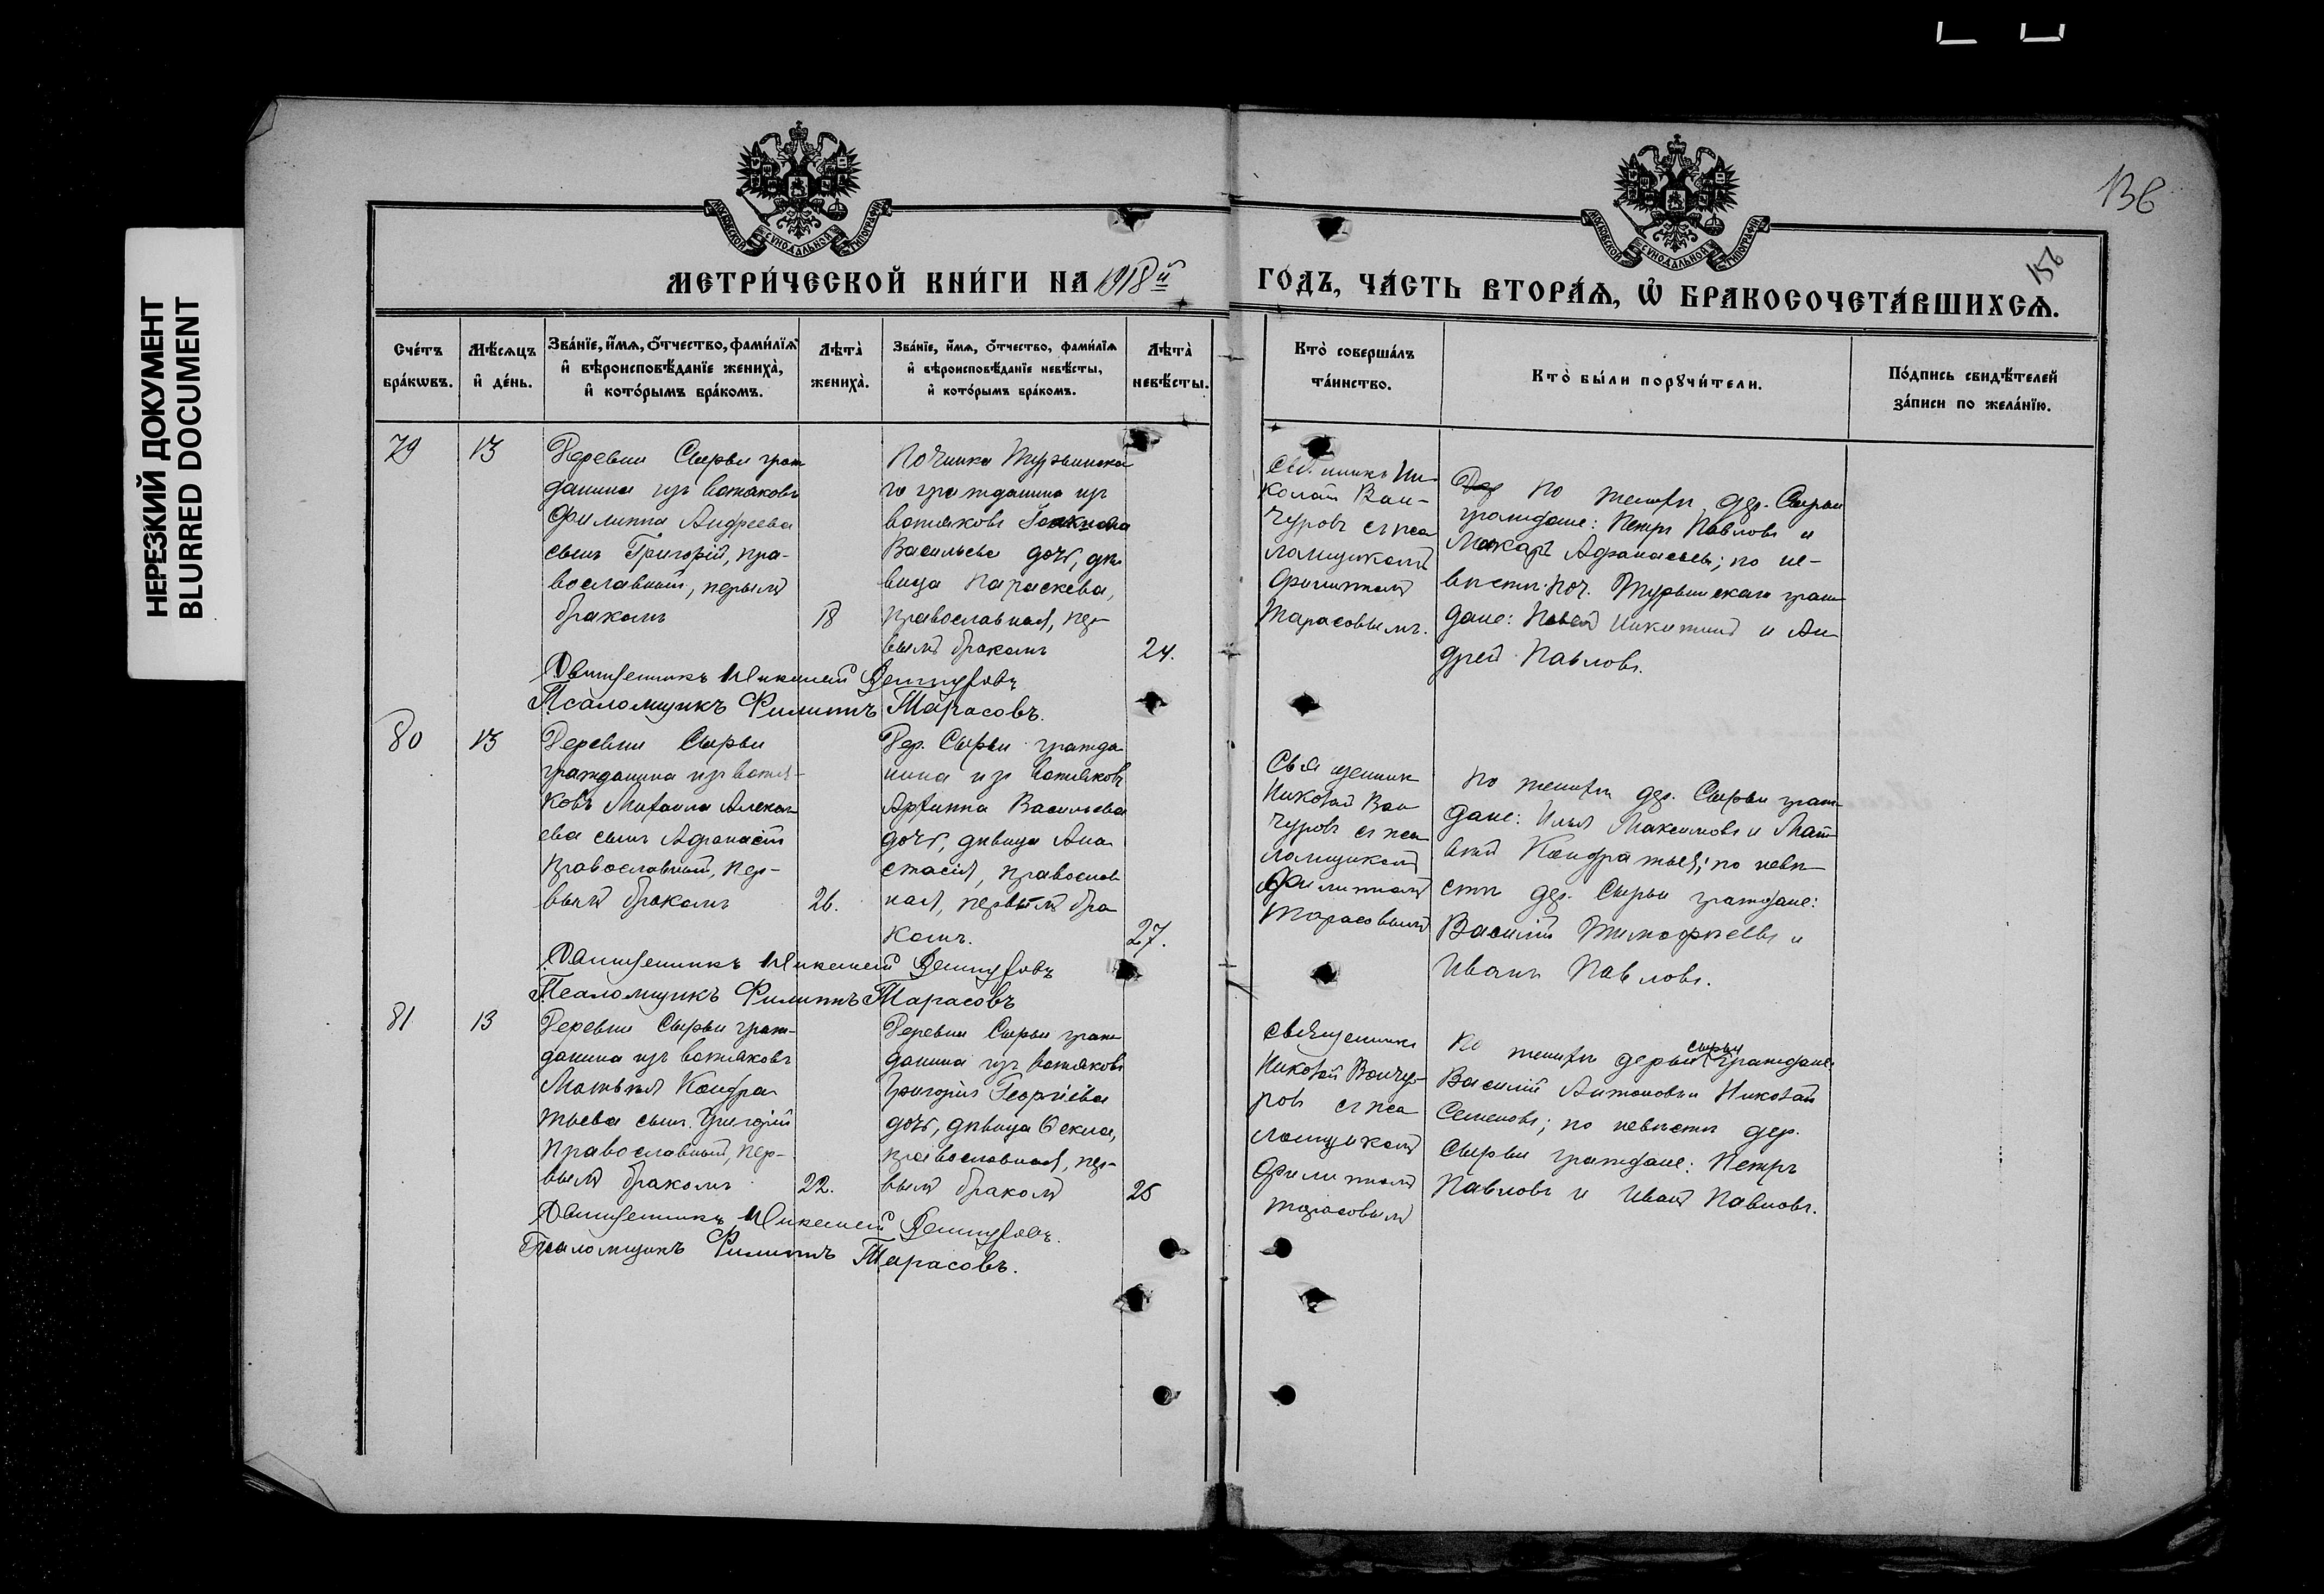 НЕРЕЗКИЙ ДОКУМЕНТ
BLURRED DOCUMENT
136
156
МОСКОВСКОЙ СУНОДАЛЬНОЙ ТИПОГРАФІИ
МОСКОВСКОЙ СУНОДАЛЬНОЙ ТИПОГРАФІИ
МЕТРИ́ЧЕСКОЙ КНИ́ГИ НА 1918й ГО́ДЪ, ЧА́СТЬ ВТОРА́Ѧ, Ѡ БРАКОСОЧЕТА́ВШИХСѦ.
Сче́тъ бра́кѡвъ.
Мѣ́сяцъ и де́нь.
Зва́нїе, и́мя, о́тчество, фами́лїя и вѣроисповѣ́данїе жениха̀, и кото́рымъ бра́комъ.
Лѣта̀ жениха̀.
Зва́нїе, и́мя, о́тчество, фами́лїя и вѣроисповѣ́данїе невѣ́сты, и кото́рымъ бра́комъ.
Лѣта̀ невѣ́сты.
Кто̀ соверша́лъ та́инство.
Кто̀ бы́ли порꙋчи́тели.
По́дпись свидѣ́телей за́писи по жела́нїю.
79
13
Деревни Сырьи граж
данина изъ вотяковъ
Филиппа Андреева
сынъ Григорій, пра-
вославный, первымъ
бракомъ
18
Починка Турьинска
го гражданина изъ
вотяковъ
Васильева дочь, дѣ
вица Параскева,
православная, пер-
вымъ бракомъ
24.
Свящ. Ни-
колай Ван-
чуровъ съ пса
ломщикомъ
Филиппомъ
Тарасовымъ.
по жениху дер. Сырьи
граждане: Петръ Павловъ и
Макаръ Афанасьевъ; по не-
вѣстѣ: поч. Турьинскаго граж
дане: Никитинъ и Ан-
дрей Павловъ.
Священникъ Николай Ванчуровъ
Псаломщикъ Филиппъ Тарасовъ.
80
13
Деревни Сырьи
гражданина изъ вотя-
ковъ Михаила Алексѣ
ева сынъ Афанасій
православный, пер-
вымъ бракомъ
26.
Дер. Сырьи гражда
нина изъ вотяковъ
Архиппа Васильева
дочь, дѣвица Ана
стасія, православ
ная, первымъ бра
комъ.
27.
Священник
Николай Ван
чуровъ съ пса
ломщикомъ
Филиппомъ
Тарасовымъ
По жениху дер. Сырьи граж-
дане: Илья Максимовъ и Мат
вѣй Кондратьевъ; по невѣ-
стѣ дер. Сырьи граждане:
Василій Тимофѣевъ и
Иванъ Павловъ.
Священникъ Николай Ванчуровъ
Псаломщикъ Филиппъ Тарасовъ
81
13
Деревни Сырьи граж-
данина изъ вотяковъ
Матвѣя Кондра
тьева сынъ Григорій
православный, пер-
вымъ бракомъ
22.
Деревни Сырьи граж
данина изъ вотяковъ
Григорія Георгіева
дочь, дѣвица Оекла,
православная, пер-
вымъ бракомъ
25
Священникъ
Николай Ванчу-
ровъ съ пса
ломщикомъ
Филиппомъ
Тарасовымъ
По жениху деревни Сырьи граждане
Василій Антоновъ и Николай
Семеновъ; по невѣстѣ дер.
Сырьи граждане: Петръ
Павловъ и Иванъ Павловъ.
Священникъ Николай Ванчуровъ.
Псаломщикъ Филиппъ Тарасовъ.